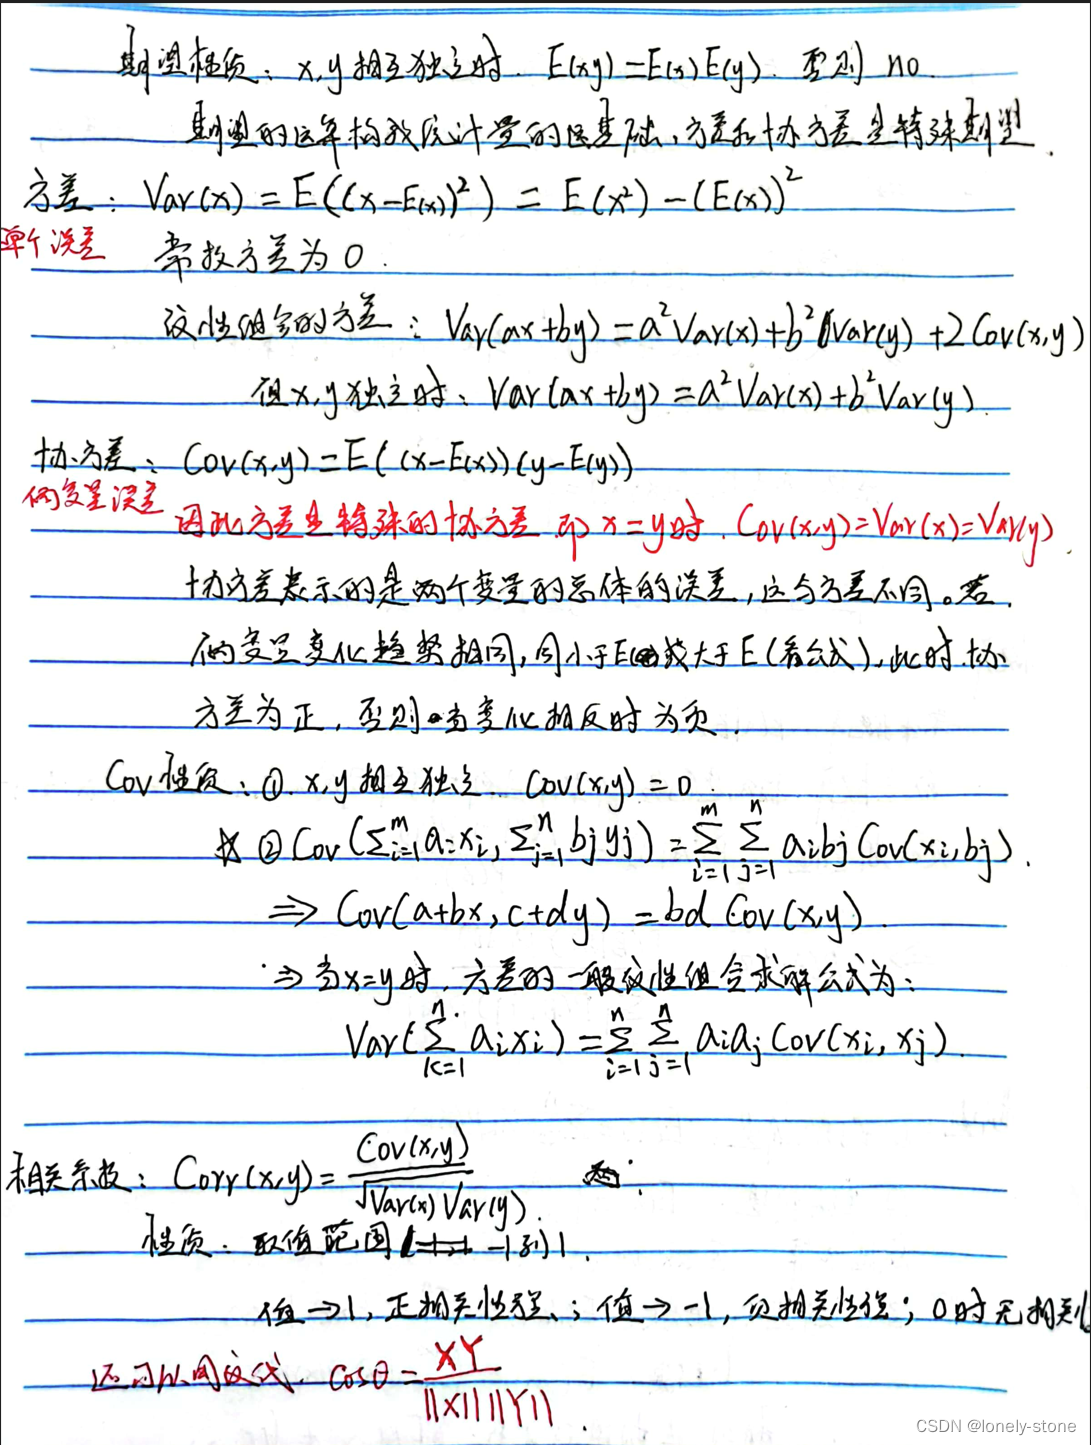 期望性质：x,y相互独立时. E(xy)=E(x)E(y). 否则 no.
期望的运算构成统计量的运算基础、方差和协方差是特殊期望.
方差：Var(x) = E((x-E(x))²) = E(x²) - (E(x))²
单个误差
常数方差为0.
线性组合的方差：Var(ax+by)=a²Var(x)+b²Var(y)+2Cov(x,y)
但x,y独立时：Var(ax+by)=a²Var(x)+b²Var(y).
协方差：Cov(x,y)=E((x-E(x))(y-E(y))
俩变量误差
因此方差是特殊的协方差 即x=y时. Cov(x,y)=Var(x)=Var(y).
协方差表示的是两个变量的总体的误差，这与方差不同。若
俩变量变化趋势相同，同小于E或大于E（看公式），此时协
方差为正，否则当变化相反时为负.
Cov性质：① x,y相互独立 Cov(x,y)=0.
② Cov(∑ᵢ₌₁ᵐ aᵢxᵢ, ∑ⱼ₌₁ⁿ bⱼyⱼ) = ∑ᵢ₌₁ᵐ ∑ⱼ₌₁ⁿ aᵢbⱼ Cov(xᵢ,bⱼ).
⇒ Cov(a+bx, c+dy) = bd Cov(x,y).
⇒ 当x=y时，方差的一般线性组合求解公式为：
Var(∑ₖ₌₁ⁿ aᵢxᵢ) = ∑ᵢ₌₁ⁿ ∑ⱼ₌₁ⁿ aᵢaⱼ Cov(xᵢ, xⱼ).
相关系数：Corr(x,y) = Cov(x,y) / √Var(x)Var(y).
性质：取值范围 -1到1.
值→1，正相关性强；值→-1，负相关性强；0时无相关
还可以用 cosθ = XY / ||X|| ||Y||
CSDN @lonely-stone